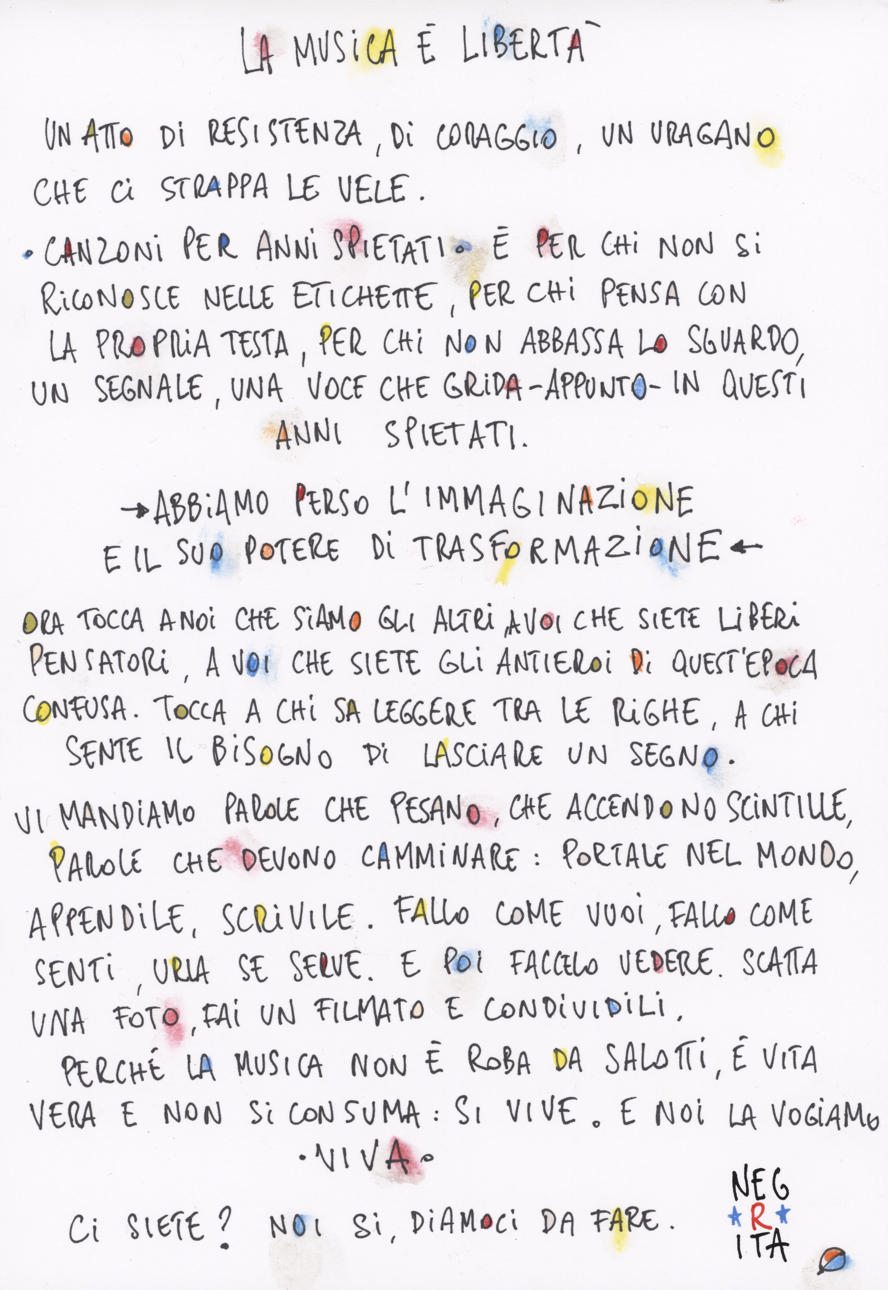 LA MUSiCA È LiBERTÀ
UN ATTO Di RESISTENZA, Di CORAGGIO, UN URAGANO
CHE Ci STRAPPA LE VELE.
• CANZONi PER ANNi SPIETATI • È PER CHi NON Si
RiCONOSCE NELLE ETICHETTE, PER CHi PENSA CON
LA PROPRiA TESTA, PER CHi NON ABBASSA LO SGUARDO,
UN SEGNALE, UNA VOCE CHE GRiDA-APPUNTO- IN QUESTI
ANNI SPIETATI.
→ABBiAMO PERSO L'IMMAGINAZiONE
E IL SUO POTERE Di TRASFORMAZiONE←
ORA TOCCA A NOi CHE SiAMO GLi ALTRi, A VOi CHE SIETE LiBERi
PENSATORi, A VOi CHE SIETE GLi ANTIEROi Di QUEST'EPOCA
CONFUSA. TOCCA A CHi SA LEGGERE TRA LE RiGHE, A CHi
SENTE IL BiSOGNO Di LASCiARE UN SEGNO.
VI MANDiAMO PAROLE CHE PESANO, CHE ACCENDONO SCiNTILLE,
PAROLE CHE DEVONO CAMMiNARE: PORTALE NEL MONDO,
APPENDiLE, SCRiVILE. FALLO COME VUOi, FALLO COME
SENTi, URLA SE SERVE. E POi FACCELO VEDERE. SCATTA
UNA FOTO, FAi UN FILMATO E CONDiViDiLi.
PERCHÉ LA MUSiCA NON È ROBA DA SALOTTi, È VITA
VERA E NON Si CONSUMA: SI VIVE. E NOi LA VOGiAMO
•VIVA•
Ci SIETE? NOi Si, DiAMOCi DA FARE.
NEG
R
ITA